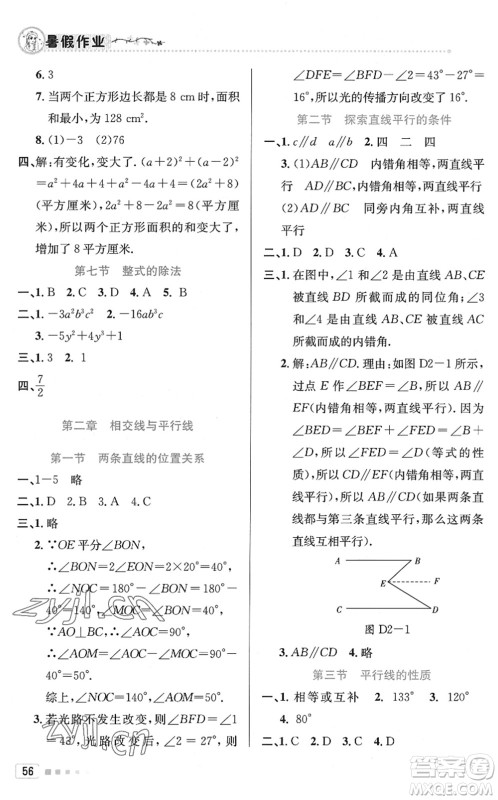 暑假作业
6. 3
7. 当两个正方形边长都是 8 cm 时，面积
和最小，为 128 cm².
8. (1)-3 (2)76
四、解：有变化，变大了. (a+2)²+(a-
2)²=a²+4a+4+a²-4a+4=2a²+8
(平方厘米)，2a²+8-2a²=8(平方厘
米)，所以两个正方形面积的和变大了，
增加了 8 平方厘米.
第七节 整式的除法
一、1. B 2. C 3. D
二、1. -3a²b³c² 2. -16bc²
3. -5y²+4xy+1
三、1. 3 2. 1
四、7/2
第二章 相交线与平行线
第一节 两条直线的位置关系
一、1-5 略
二、1. D 2. B 3. A 4. D
三、1. 略
2. ∵OE 平分∠BON，
∴∠BON=2∠EON=40°，
∴∠NOC=180°-∠BON=180°-
40°=140°，∠MOC=∠BON=40°.
∵AO⊥BC，∴∠AOC=90°，
∴∠AOM=∠AOC-∠MOC=90°-
40°=50°.
综上，∠NOC=140°，∠AOM=50°.
3. 若光路不发生改变，则∠BFD=∠
1=43°，光路改变后，∠2=27°，则
∠DFE=∠BFD-∠2=43°-27°=
16°. 所以光的传播方向改变了 16°.
第二节 探索直线平行的条件
一、1. c∥d a∥b 2. 四 二 四
3. (1)AB∥CD 内错角相等，两直线平
行 AB∥CD 内错角相等，两直线
平行
(2)AB∥CD 同旁内角互补，两直
线平行
二、1. D 2. D 3. C 4. A
三、1. 在图中，∠1 和∠2 是直线 AB、CE
被直线 BD 所截而成的同位角；∠3
和∠4 是直线 AB、CE 被直线 AC
所截而成的内错角.
2. AB∥CD. 理由：如图 D2-1 所示，
过点 E 作∠BEF=∠B，∴AB∥EF
(内错角相等，两直线平行).
∵∠BED=∠B+∠D，∴∠FED=
∠D，∴CD∥EF(内错角相等，两直
线平行)，∴AB∥CD(如果两条直线
都与第三条直线平行，那么这两条直
线也互相平行).
A B
E F
C D
图 D2-1
3. AB∥CD 4. 略
第三节 平行线的性质
一、1. 相等或互补 2. 133° 3. 120°
4. 80°
二、1. C 2. D 3. C 4. D
56
zyjl.cn
zyjl.cn